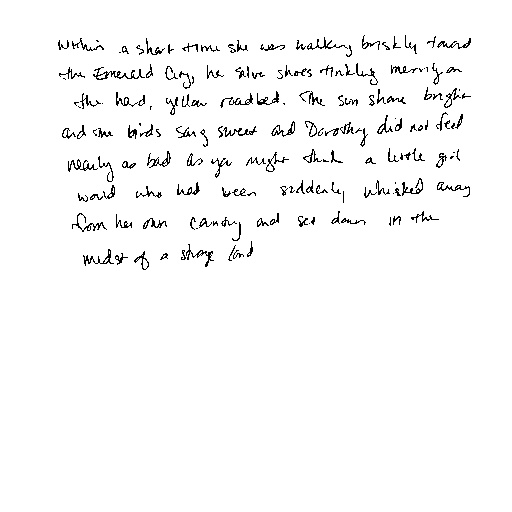 Within a short time she was walking briskly toward
the Emerald City, her silver shoes tinkling merrily on
the hard, yellow roadbed. The sun shone bright
and the birds sang sweet and Dorothy did not feel
nearly as bad as you might think a little girl
would who had been suddenly whisked away
from her own country and set down in the
midst of a strange land